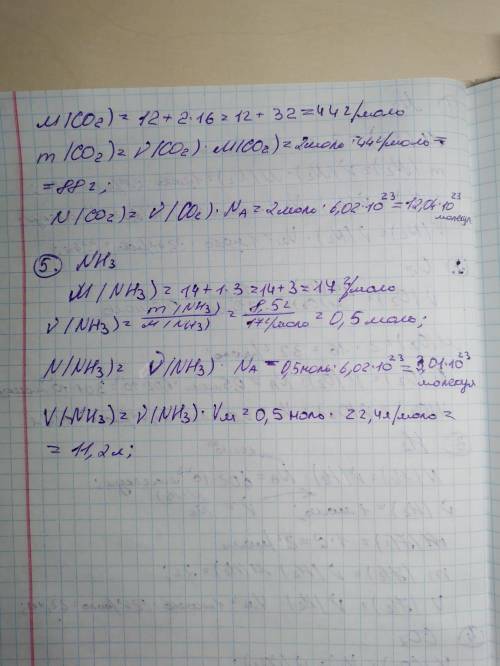 M(CO2) = 12 + 2·16 = 12 + 32 = 44 г/моль
m(CO2) = ν(CO2) · M(CO2) = 2моль · 44г/моль =
= 88 г;
N(CO2) = ν(CO2) · NA = 2моль · 6,02·10^23 = 12,04·10^23 молекул
5. NH3
M(NH3) = 14 + 1·3 = 14 + 3 = 17 г/моль
ν(NH3) = m(NH3)/M(NH3) = 8,5г/17г/моль = 0,5 моль;
N(NH3) = ν(NH3) · NA = 0,5моль · 6,02·10^23 = 3,01·10^23 молекул
V(NH3) = ν(NH3) · Vм = 0,5 моль · 22,4л/моль =
= 11,2л;